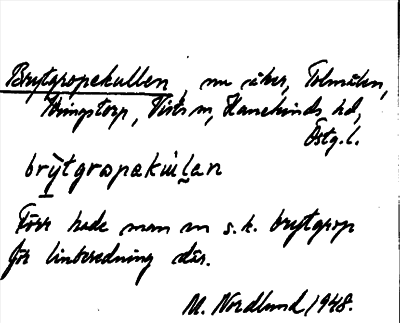 Brytgropekullen, nu åker, Tolmålen,
Kringstorp, Vists sn, Hanekinds hd,
Östg.l.
brỳtgrɷpakùḷan
Förr hade man en s.k. brytgrop
för linberedning där.
M. Nordlund 1948.